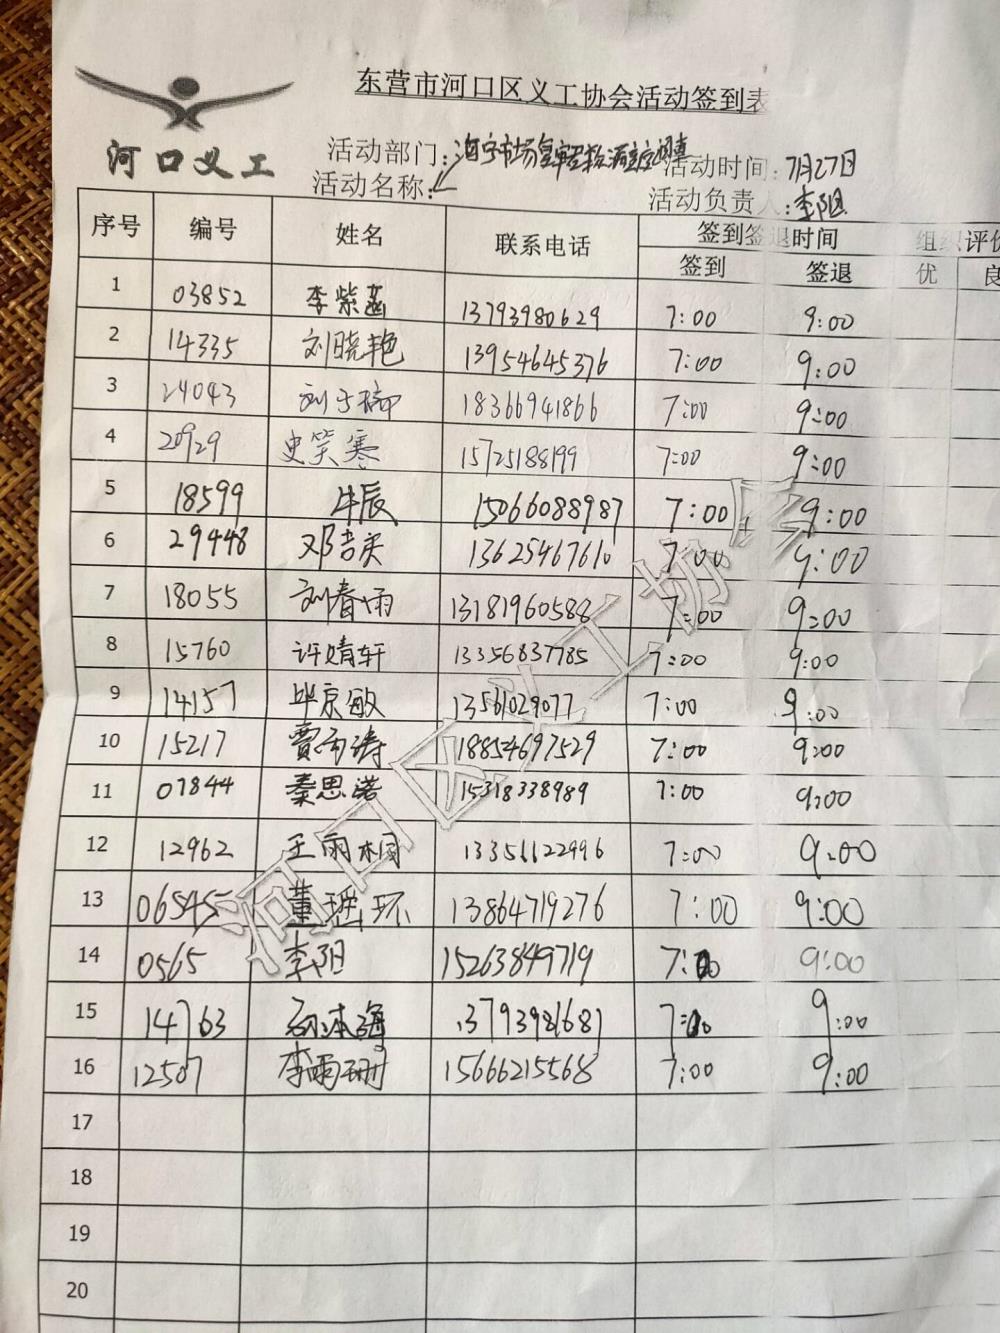 东营市河口区义工协会活动签到表
河口义工
活动部门:
活动时间: 7月27日
活动名称:
活动负责人: 李阳
序号 编号 姓名 联系电话 签到签退时间 组织评价
签到 签退 优 良
1 03852 李紫菡 13793980629 7:00 9:00
2 14335 刘晓艳 13954645376 7:00 9:00
3 24043 刘子 18366941866 7:00 9:00
4 20929 史笑寒 15725188199 7:00 9:00
5 18599 牛辰 15066088987 7:00 9:00
6 29448 邓吉英 13625467610 7:00 9:00
7 18055 刘春雨 13181960588 7:00 9:00
8 15760 许婧轩 13356837785 7:00 9:00
9 14157 毕京敏 13561029077 7:00 9:00
10 15217 贾雨涛 18854697529 7:00 9:00
11 07844 秦思诺 15318338989 7:00 9:00
12 12962 王雨桐 13351122996 7:00 9:00
13 06545 董瑶环 13864719276 7:00 9:00
14 0565 李阳 15263849719 7:00 9:00
15 14763 13793981681 7:00 9:00
16 12507 李雨珊 15666215568 7:00 9:00
17
18
19
20
河口区义工协会